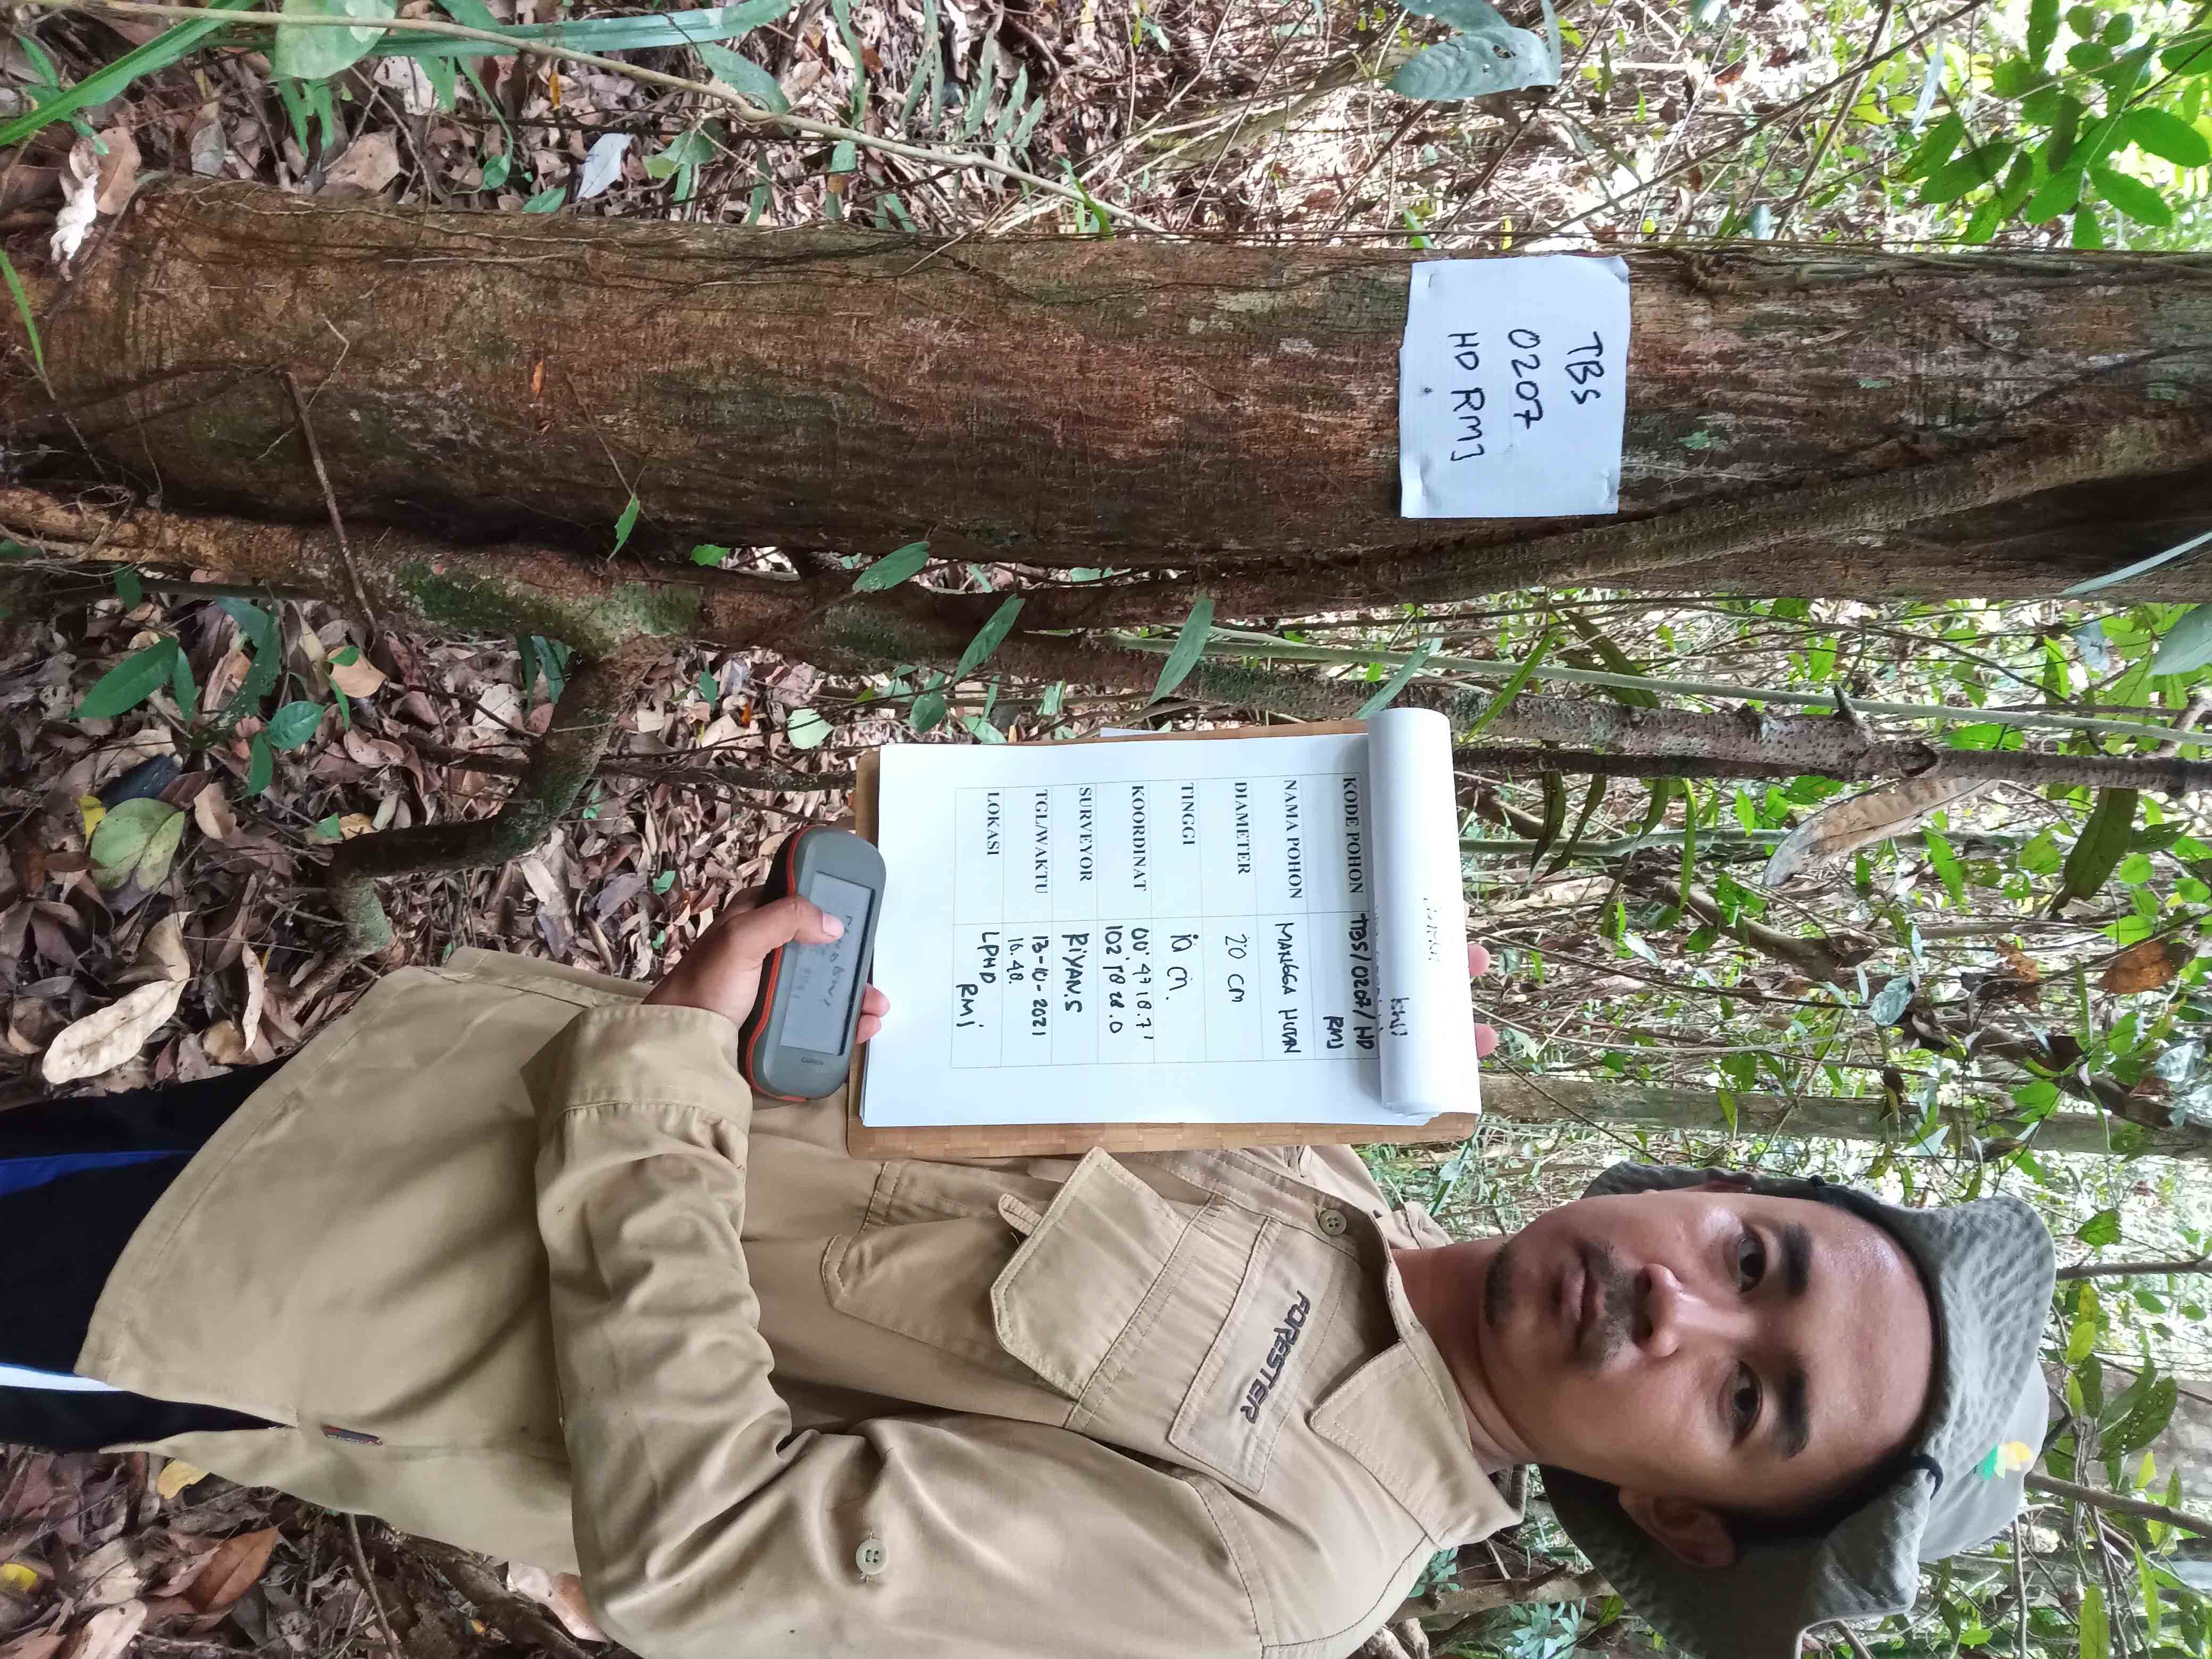 TBS
0207
HD RMJ
KODE POHON TBS/0207/HD
RMJ
NAMA POHON MANGGA HUTAN
DIAMETER 20 CM
TINGGI 10 M.
KOORDINAT
SURVEYOR RiYAN.S
TGL/WAKTU 13-10-2021
LOKASI LPHD
RMJ
FORESTER
GARMIN